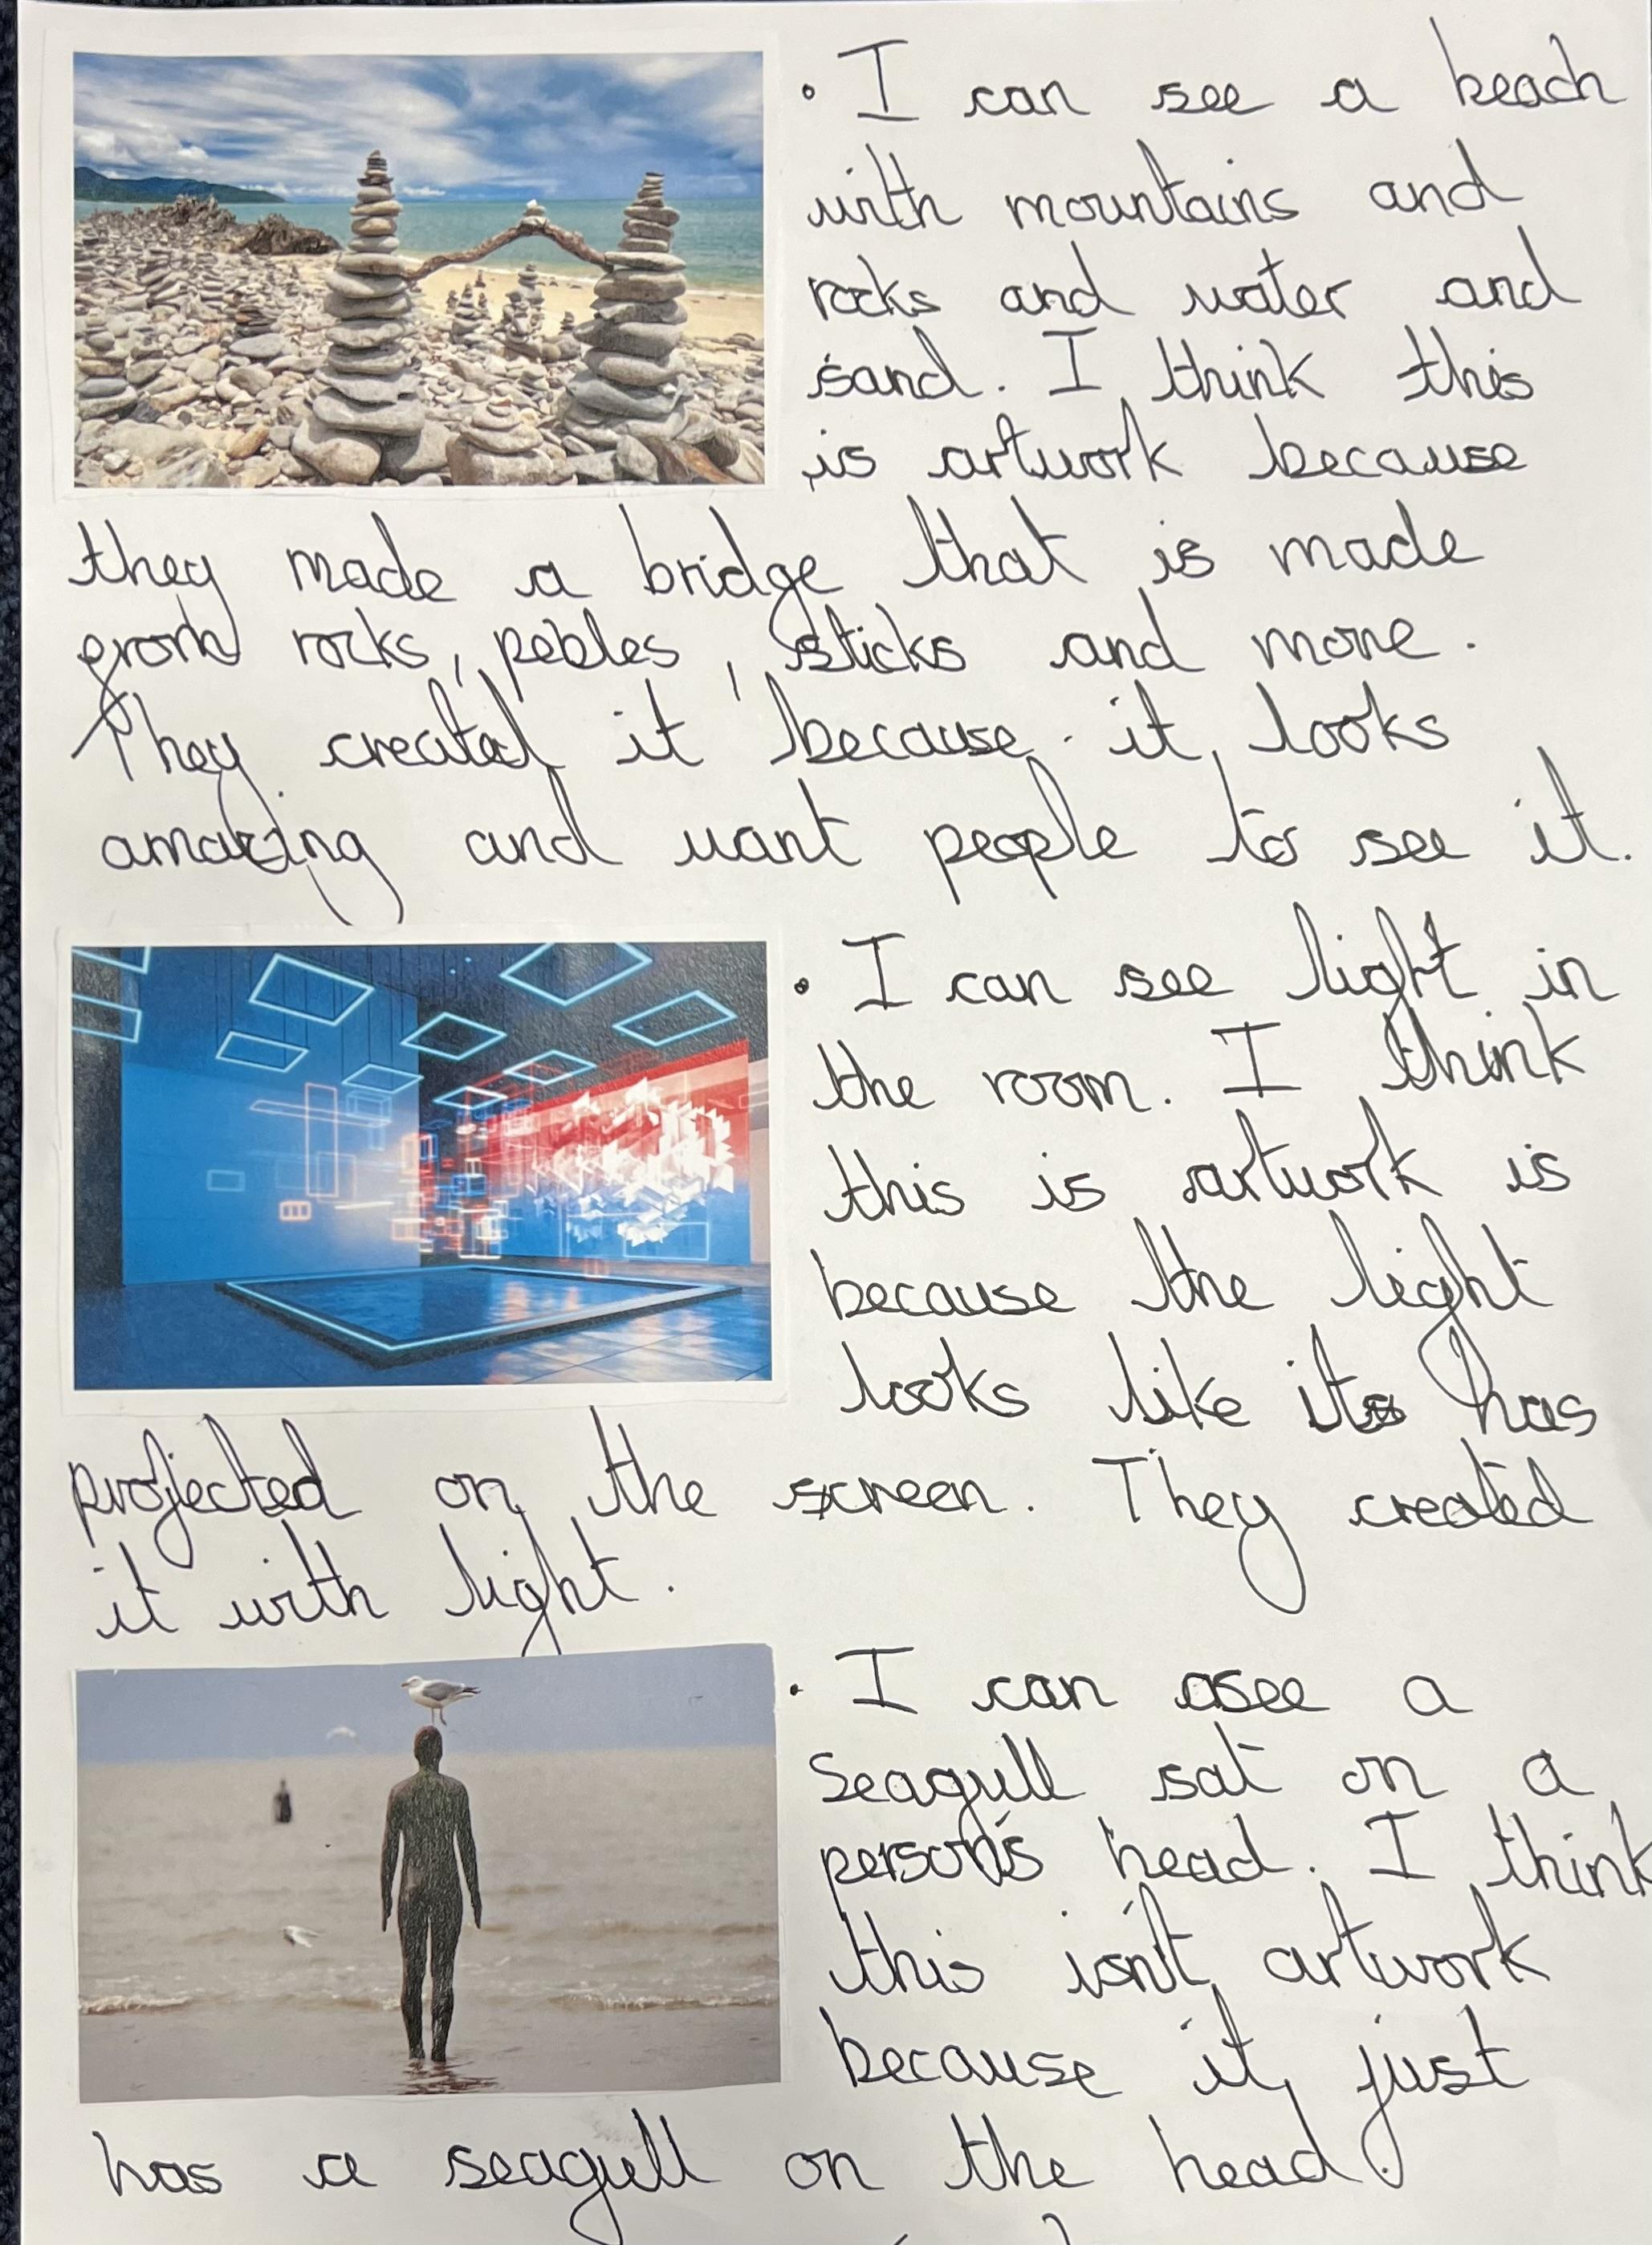 • I can see a beach
with mountains and
rocks and water and
sand. I think this
is artwork because
they made a bridge that is made
from rocks, pebles, sticks and more.
They created it because it looks
amazing and want people to see it.
• I can see light in
the room. I think
this is artwork is
because the light
looks like its has
projected on the screen. They created
it with light.
• I can see a
seagull sat on a
person's head. I think
this isn't artwork
because it just
has a seagull on the head.